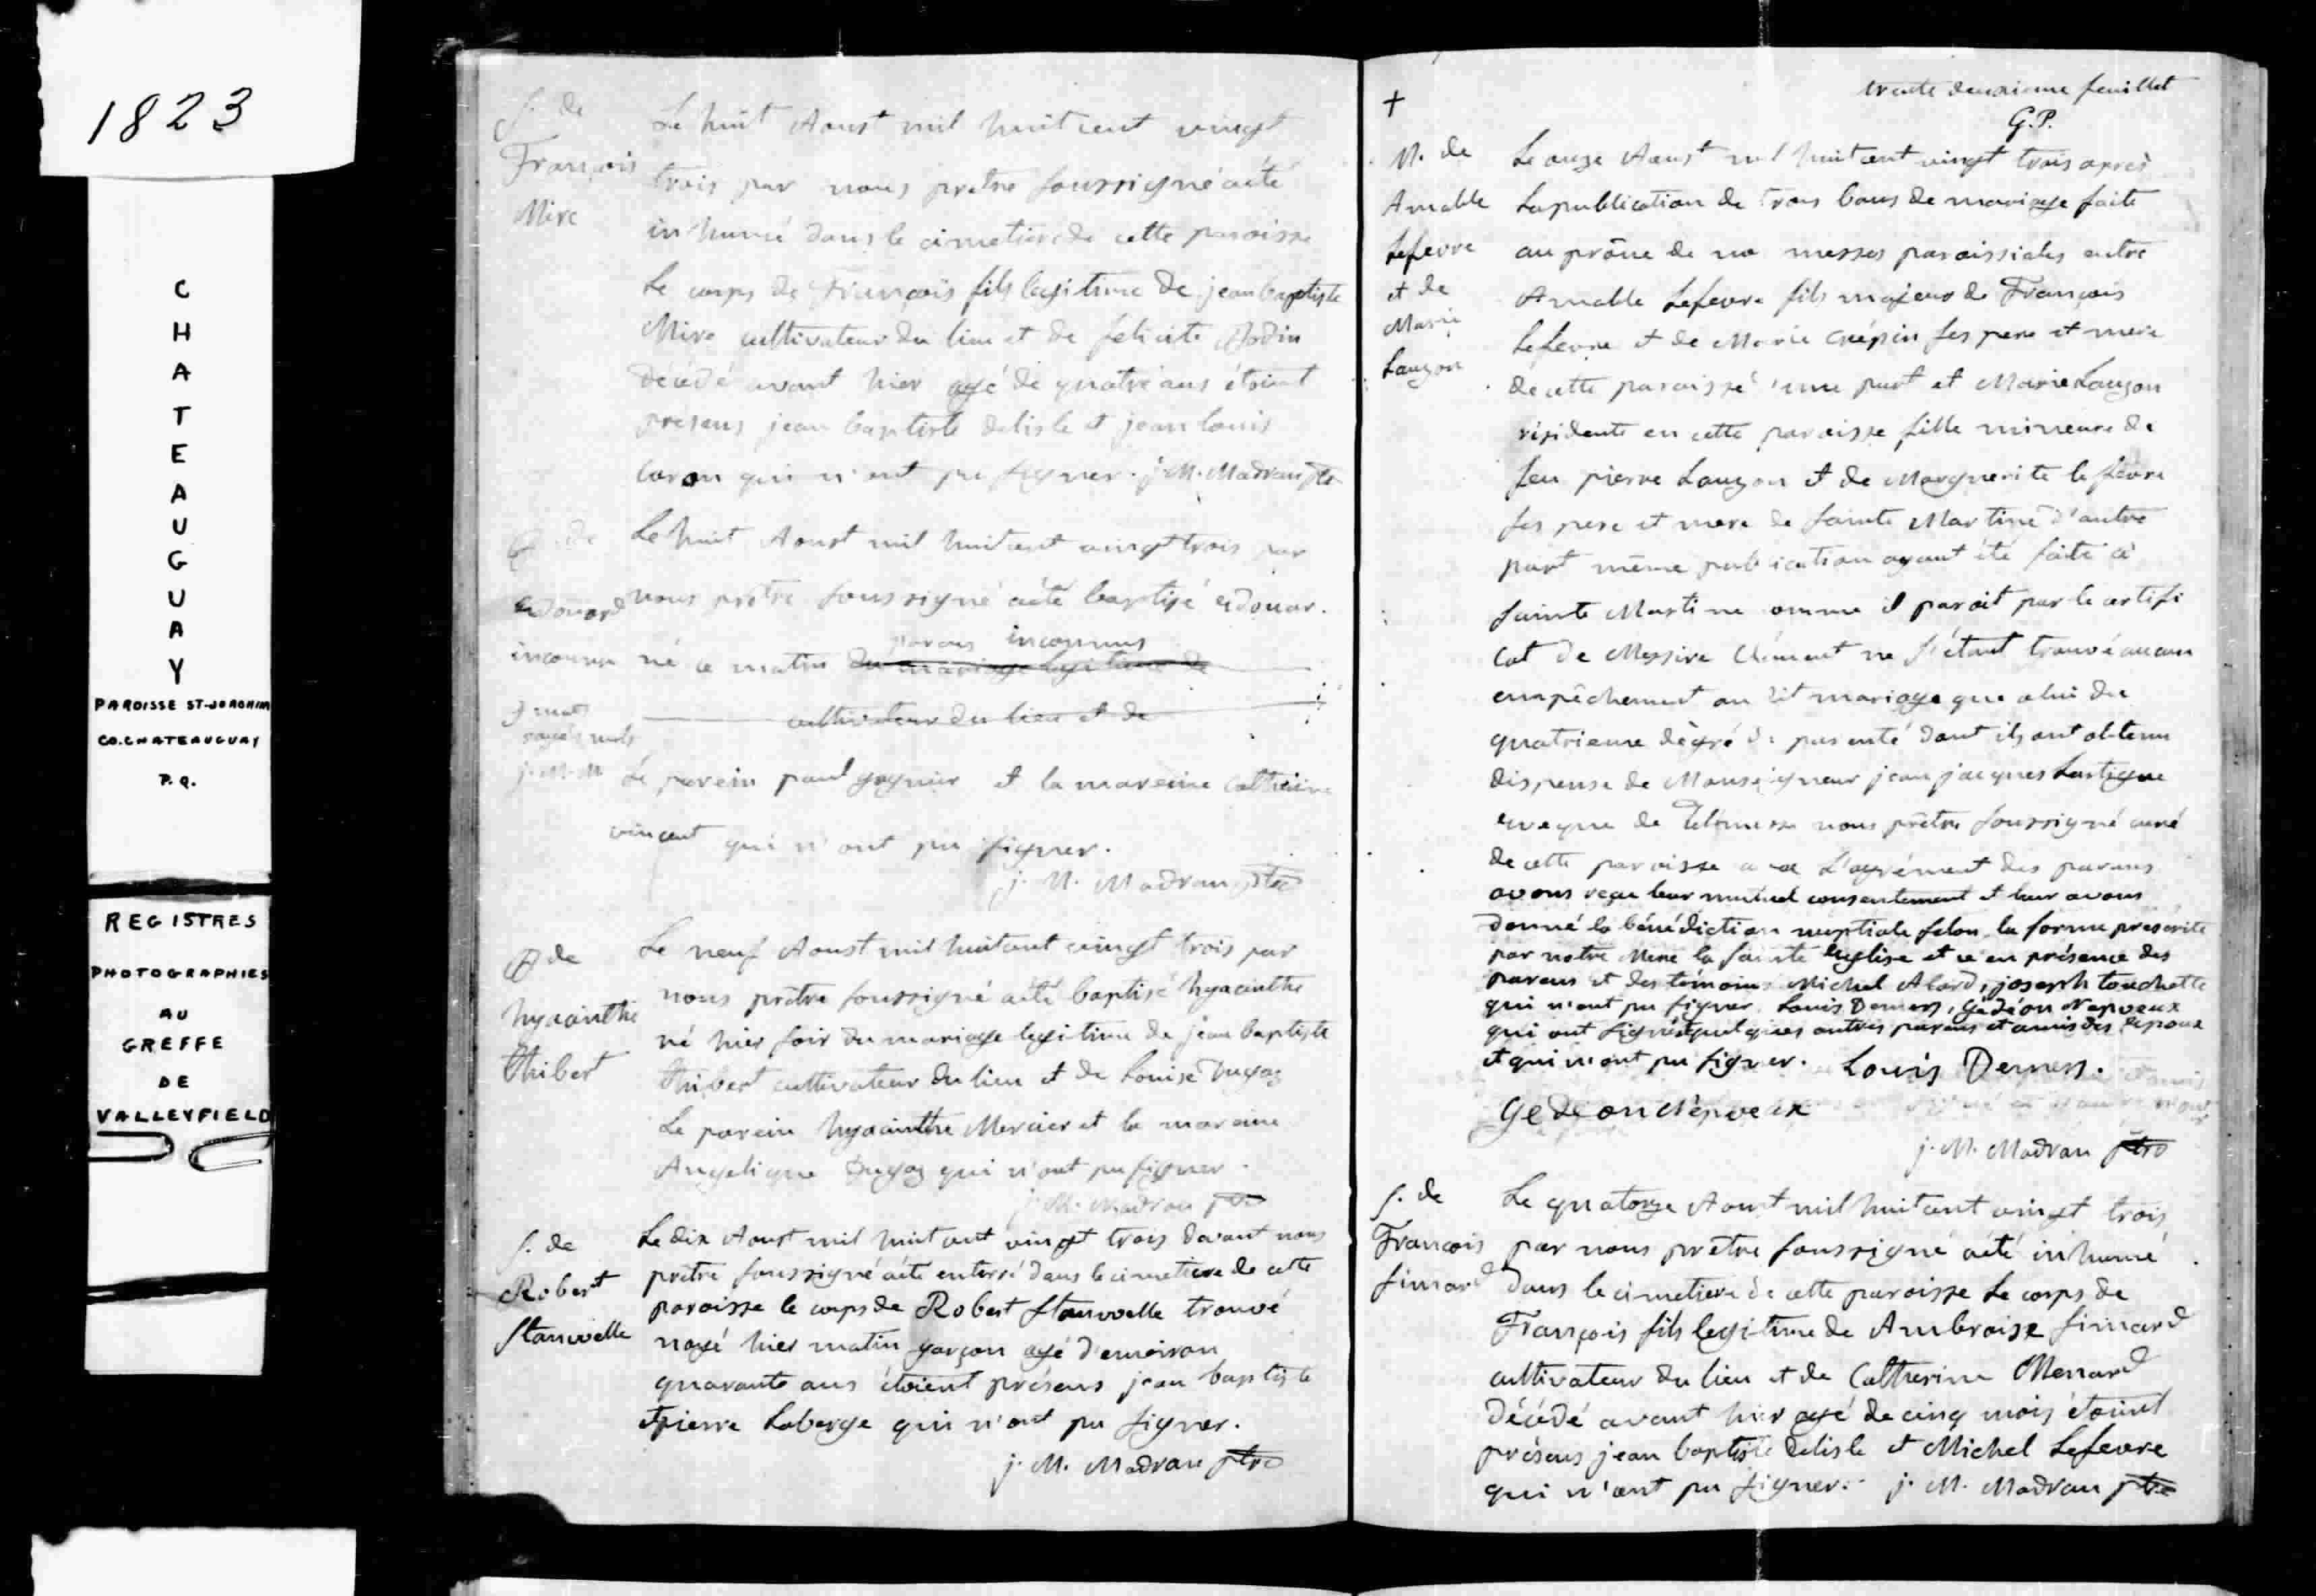 1823
CHATEAUGUAY
PAROISSE ST-JOACHIM
CO. CHATEAUGUAY
P. Q.
REGISTRES
PHOTOGRAPHIES
AU
GREFFE
DE
VALLEYFIELD
S. de
François
Mire
Le huit Aoust mil huit cent vingt
trois par nous prêtre soussigné a été
inhumé dans le cimetiere de cette paroisse
Le corps de François fils legitime de jean baptiste
Mire cultivateur du lieu et de felicité
décédé avant hier agé de quatre ans étoient
presens jean baptiste delisle et jean louis
caron qui n'ont pu signer. j. M. Madran ptre
B. de
Edouard
inconnu
7 mots
rayés nuls
j. M. M
Le huit Aoust mil huit cent vingt trois par
nous prêtre soussigné a été baptisé edouar
né ce matin du mariage legitime de
parens inconnus
cultivateur du lieu et de
Le parein paul gagnier et la mareine Catherine
vincent qui n'ont pu signer.
j. M. Madran ptre
B de
hyacinthe
Thibert
Le neuf Aoust mil huit cent vingt trois par
nous prêtre soussigné a été baptisé hyacinthe
né hier soir du mariage legitime de jean baptiste
Thibert cultivateur du lieu et de Louise Dugas
Le parein hyacinthe Mercier et la mareine
Angelique Dugas qui n'ont pu signer.
j. M. Madran ptre
S. de
Robert
Stanwelle
Le dix Aoust mil huit cent vingt trois devant nous
prêtre soussigné a été enterré dans le cimetiere de cette
paroisse le corps de Robert Stanwelle trouvé
noyé hier matin garçon agé d'environ
quarante ans étoient présens jean baptiste
et pierre Laberge qui n'ont pu signer.
j. M. Madran ptre
trente deuxieme feuillet
G. P.
+
M. de
Amable
Lefevre
et de
Marie
Lauzon
Le onze Aoust mil huit cent vingt trois après
La publication de trois bans de mariage faite
au prône de no messes paroissiales entre
Amable Lefevre fils majeur de François
Lefevre et de Marie Crépin ses pere et mere
de cette paroisse d'une part et Marie Lauzon
résidente en cette paroisse fille mineure de
feu pierre Lauzon et de Marguerite lefevre
ses pere et mere de sainte Martine d'autre
part même publication ayant été faite à
sainte Martine comme il paroit par le certifi
cat de Messire Clément ne s'étant trouvé aucun
empêchement au dit mariage que celui du
quatrieme dégré de parenté dont ils ont obtenu
dispense de Monseigneur jean jacques Lartigue
eveque de Telmesse nous prêtre soussigné curé
de cette paroisse avec L'agrément des parens
avons reçu leur mutuel consentement et leur avons
donné la bénédiction nuptiale selon la forme prescrite
par notre Mere la sainte Eglise et ce en présence des
parens et des témoins Michel Alard, joseph touchette
qui n'ont pu signer Louis Demers, Gédéon Nepveux
qui ont signé et quelques autres parens et amis des Epoux
et qui n'ont pu signer. Louis Demers.
Gedeon Nepveux
j. M. Madran ptre
S. de
François
simard
Le quatorze Aoust mil huit cent vingt trois
par nous prêtre soussigné a été inhumé
dans le cimetiere de cette paroisse Le corps de
François fils legitime de Ambroise simard
cultivateur du lieu et de Catherine Menard
décédé avant hier agé de cinq mois étoient
présens jean baptiste delisle et Michel Lefevre
qui n'ont pu signer. j. M. Madran ptre